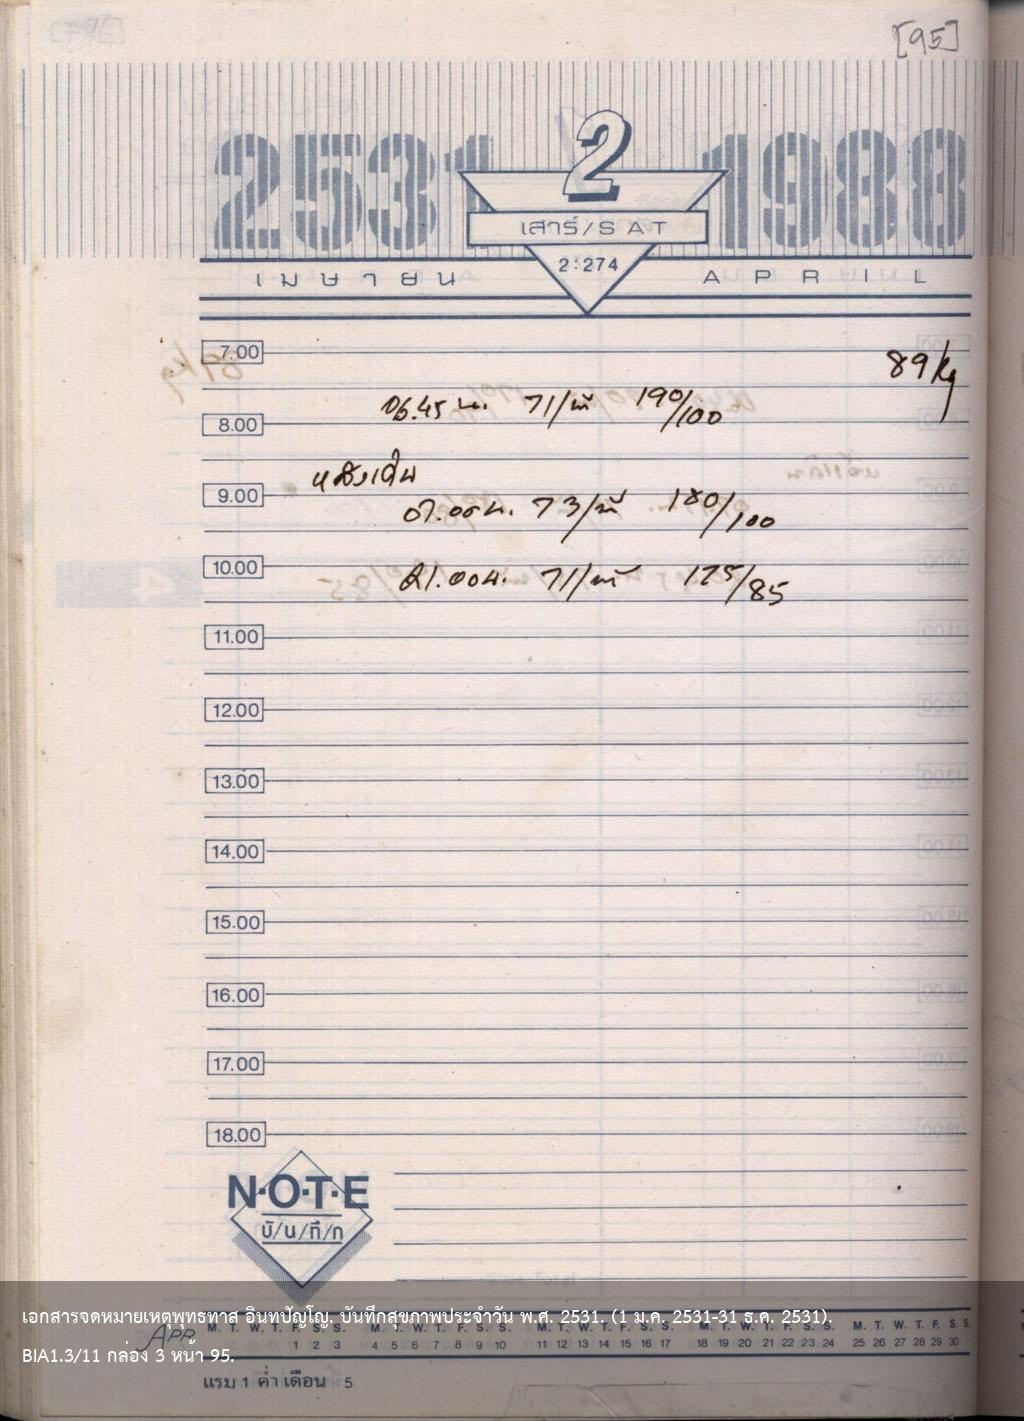 [95]
2531 1988
2
เสาร์/SAT
2:274
เมษายน APRIL
7.00
89 kg
06.45 น. 71/นาที 190/100
8.00
หลังเดิน
9.00
07.05 น. 73/นาที 180/100
10.00
21.00 น. 71/นาที 175/85
11.00
12.00
13.00
14.00
15.00
16.00
17.00
18.00
N·O·T·E
บั/น/ทึ/ก
เอกสารจดหมายเหตุพุทธทาส อินทปัญโญ. บันทึกสุขภาพประจำวัน พ.ศ. 2531. (1 ม.ค. 2531-31 ธ.ค. 2531).
APR M. T. W. T. F. S. S. M. T. W. T. F. S. S. M. T. W. T. F. S. S. M. T. W. T. F. S. S. M. T. W. T. F. S. S.
1 2 3 4 5 6 7 8 9 10 11 12 13 14 15 16 17 18 19 20 21 22 23 24 25 26 27 28 29 30
BIA1.3/11 กล่อง 3 หน้า 95.
แรม 1 ค่ำ เดือน 5